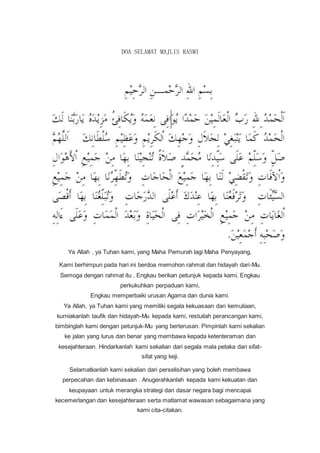 DOA SELAMAT MAJLIS RASMI
بِسْمِ اللهِ الرَّحْمـــنِ الرَّحِيْمِ
اَلْحَمْدُ لِلهِ رَبِّ الْعَالَمِيْنَ حَمْدًا يُوَافِى نِعَمَهُ وَيُكَافِئُ مَزِيْدَهُ يَارَبَّنَا لَكَ
الْحَمْدُ كَمَا يَنْبَغِيْ لِجَلَالِ وَجْهِكَ الْكَرِيْمِ وَعَظِيْمِ سُلْطَانِكَ اَللَّهُمَّ
صَلِّ وَسَلِّمْ عَلَى سَيِّدِنَا مُحَمَّدٍ صَلَاةً تُنْجِيْنَا بِهَا مِنْ جَمِيْعِ الْأَهْوَالِ
وَالْآفَاتِ وَتَقْضِيْ لَنَا بِهَا جَمِيْعَ الْحَاجَاتِ وَتُطَهِّرُنَا بِهَا مِنْ جَمِيْعِ
السَّيِّئَاتِ وَتَرْفَعُنَا بِهَا عِنْدَكَ أَعْلَى الدَّرَجَاتِ وَتُبَلِّغُنَا بِهَا أَقْصَى
الْغَايَاتِ مِنْ جَمِيْعِ الْخَيْرَاتِ فِى الْحَيَاةِ وَبَعْدَ الْمَمَاتِ وَعَلَى ءَالِهِ
وَصَحْبِهِ أَجْمَعِيْنَ.
Ya Allah , ya Tuhan kami, yang Maha Pemurah lagi Maha Penyayang,
Kami berhimpun pada hari ini berdoa memohon rahmat dan hidayah dari-Mu.
Semoga dengan rahmat itu , Engkau berikan petunjuk kepada kami, Engkau
perkukuhkan perpaduan kami,
Engkau memperbaiki urusan Agama dan dunia kami.
Ya Allah, ya Tuhan kami yang memiliki segala kekuasaan dan kemuliaan,
kurniakanlah taufik dan hidayah-Mu kepada kami, restuilah perancangan kami,
bimbinglah kami dengan petunjuk-Mu yang berterusan. Pimpinlah kami sekalian
ke jalan yang lurus dan benar yang membawa kepada ketenteraman dan
kesejahteraan. Hindarkanlah kami sekalian dari segala mala petaka dan sifat-
sifat yang keji.
Selamatkanlah kami sekalian dari perselisihan yang boleh membawa
perpecahan dan kebinasaan . Anugerahkanlah kepada kami kekuatan dan
keupayaan untuk merangka strategi dan dasar negara bagi mencapai
kecemerlangan dan kesejahteraan serta matlamat wawasan sebagaimana yang
kami cita-citakan.